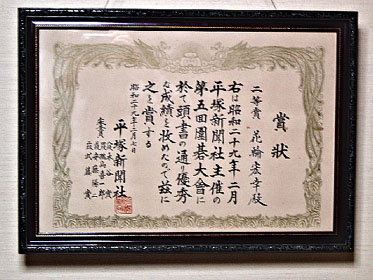 賞状
二等賞 花輪宏幸殿
右は昭和二十九年二月
平塚新聞社主催の
第五回圍碁大會に
於て頭書の通り優秀
な成績を收めたので茲に
之を賞する
昭和二十九年三月七日
平塚新聞社